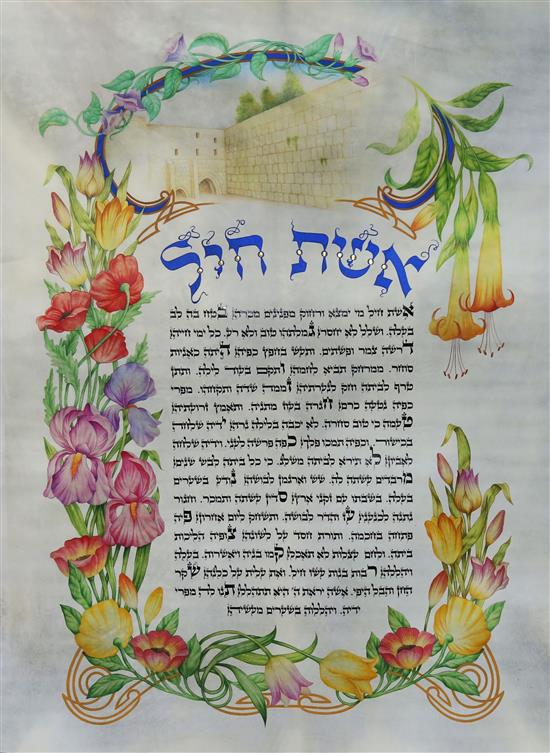 אשת חיל
אשת חיל מי ימצא ורחוק מפנינים מכרה בטח בה לב
בעלה. ושלל לא יחסר גמלתהו טוב ולא רע. כל ימי חייה
דרשה צמר ופשתים. ותעש בחפץ כפיה היתה כאניות
סוחר. ממרחק תביא לחמה ותקם בעוד לילה. ותתן
טרף לביתה וחק לנערתיה זממה שדה ותקחהו. מפרי
כפיה נטעה כרם חגרה בעוז מתניה. ותאמץ זרועתיה
טעמה כי טוב סחרה. לא יכבה בלילה נרה ידיה שלחה
בכישור. וכפיה תמכו פלך כפה פרשה לעני. וידיה שלחה
לאביון לא תירא לביתה משלג. כי כל ביתה לבש שנים
מרבדים עשתה לה. שש וארגמן לבושה נודע בשערים
בעלה. בשבתו עם זקני ארץ סדין עשתה ותמכר. וחגור
נתנה לכנעני עוז והדר לבושה. ותשחק ליום אחרון פיה
פתחה בחכמה. ותורת חסד על לשונה צופיה הליכות
ביתה. ולחם עצלות לא תאכל קמו בניה ויאשרוה. בעלה
ויהללה רבות בנות עשו חיל. ואת עלית על כלנה שקר
החן והבל היפי. אשה יראת ה' היא תתהלל תנו לה מפרי
ידיה. ויהללוה בשערים מעשיה